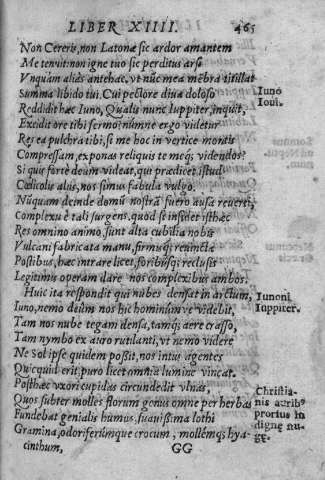 LIBER XIIII. 465
Non Cereris, non Latonæ sic ardor amantem
Me tenuit: non igne tuo sic perditus arsi
Vnquàm aliàs antehac, vt nũc mea mẽbra titillat
Summa libido tui. Cui pectore diua doloso
Iuno
Ioui.
Reddidit hæc Iuno, Qualis nunc Iuppiter, inquit,
Excidit ore tibi sermo; númne ergo videtur
Res ea pulchra tibi, si me hoc in vertice montis
Compressam, exponas reliquis te meq; videndos?
Si quis fortè deùm videat, qui prædicet istud
Cœlicolis aliis, nos simus fabula vulgo.
Nũquam deinde domũ nostrã fuero ausa reuerti,
Complexu è tali surgens, quod se insinet isthæc
Res omnino animo, sunt alta cubilia nobis
Vulcani fabricata manu, firmisq; reuincta
Postibus, hæc intrare licet, foribúsq; reclusis
Legitimis operam dare nos complexibus ambos.
Huic ita respondit qui nubes densat in arctum,
Iunoni
Iuppiter.
Iuno, nemo deùm nos hic hominúmve videbit,
Tam nos nube tegam densa, tamq; aere crasso,
Tam nymbo ex auro rutilanti, vt nemo videre
Ne Sol ipse quidem possit, nos intus agentes
Quicquid erit, puro licet omnia lumine vincat.
Posthæc vxori cupidas circundedit vlnas,
Christia-
nis aurib⁹
prorsus in
dignę nu-
gę.
Quos subter molles florum genus omne per herbas
Fundebat genialis humus, suauissima lothi
Gramina, odoriferúmque crocum, mollémq; hya-
cinthum, GG